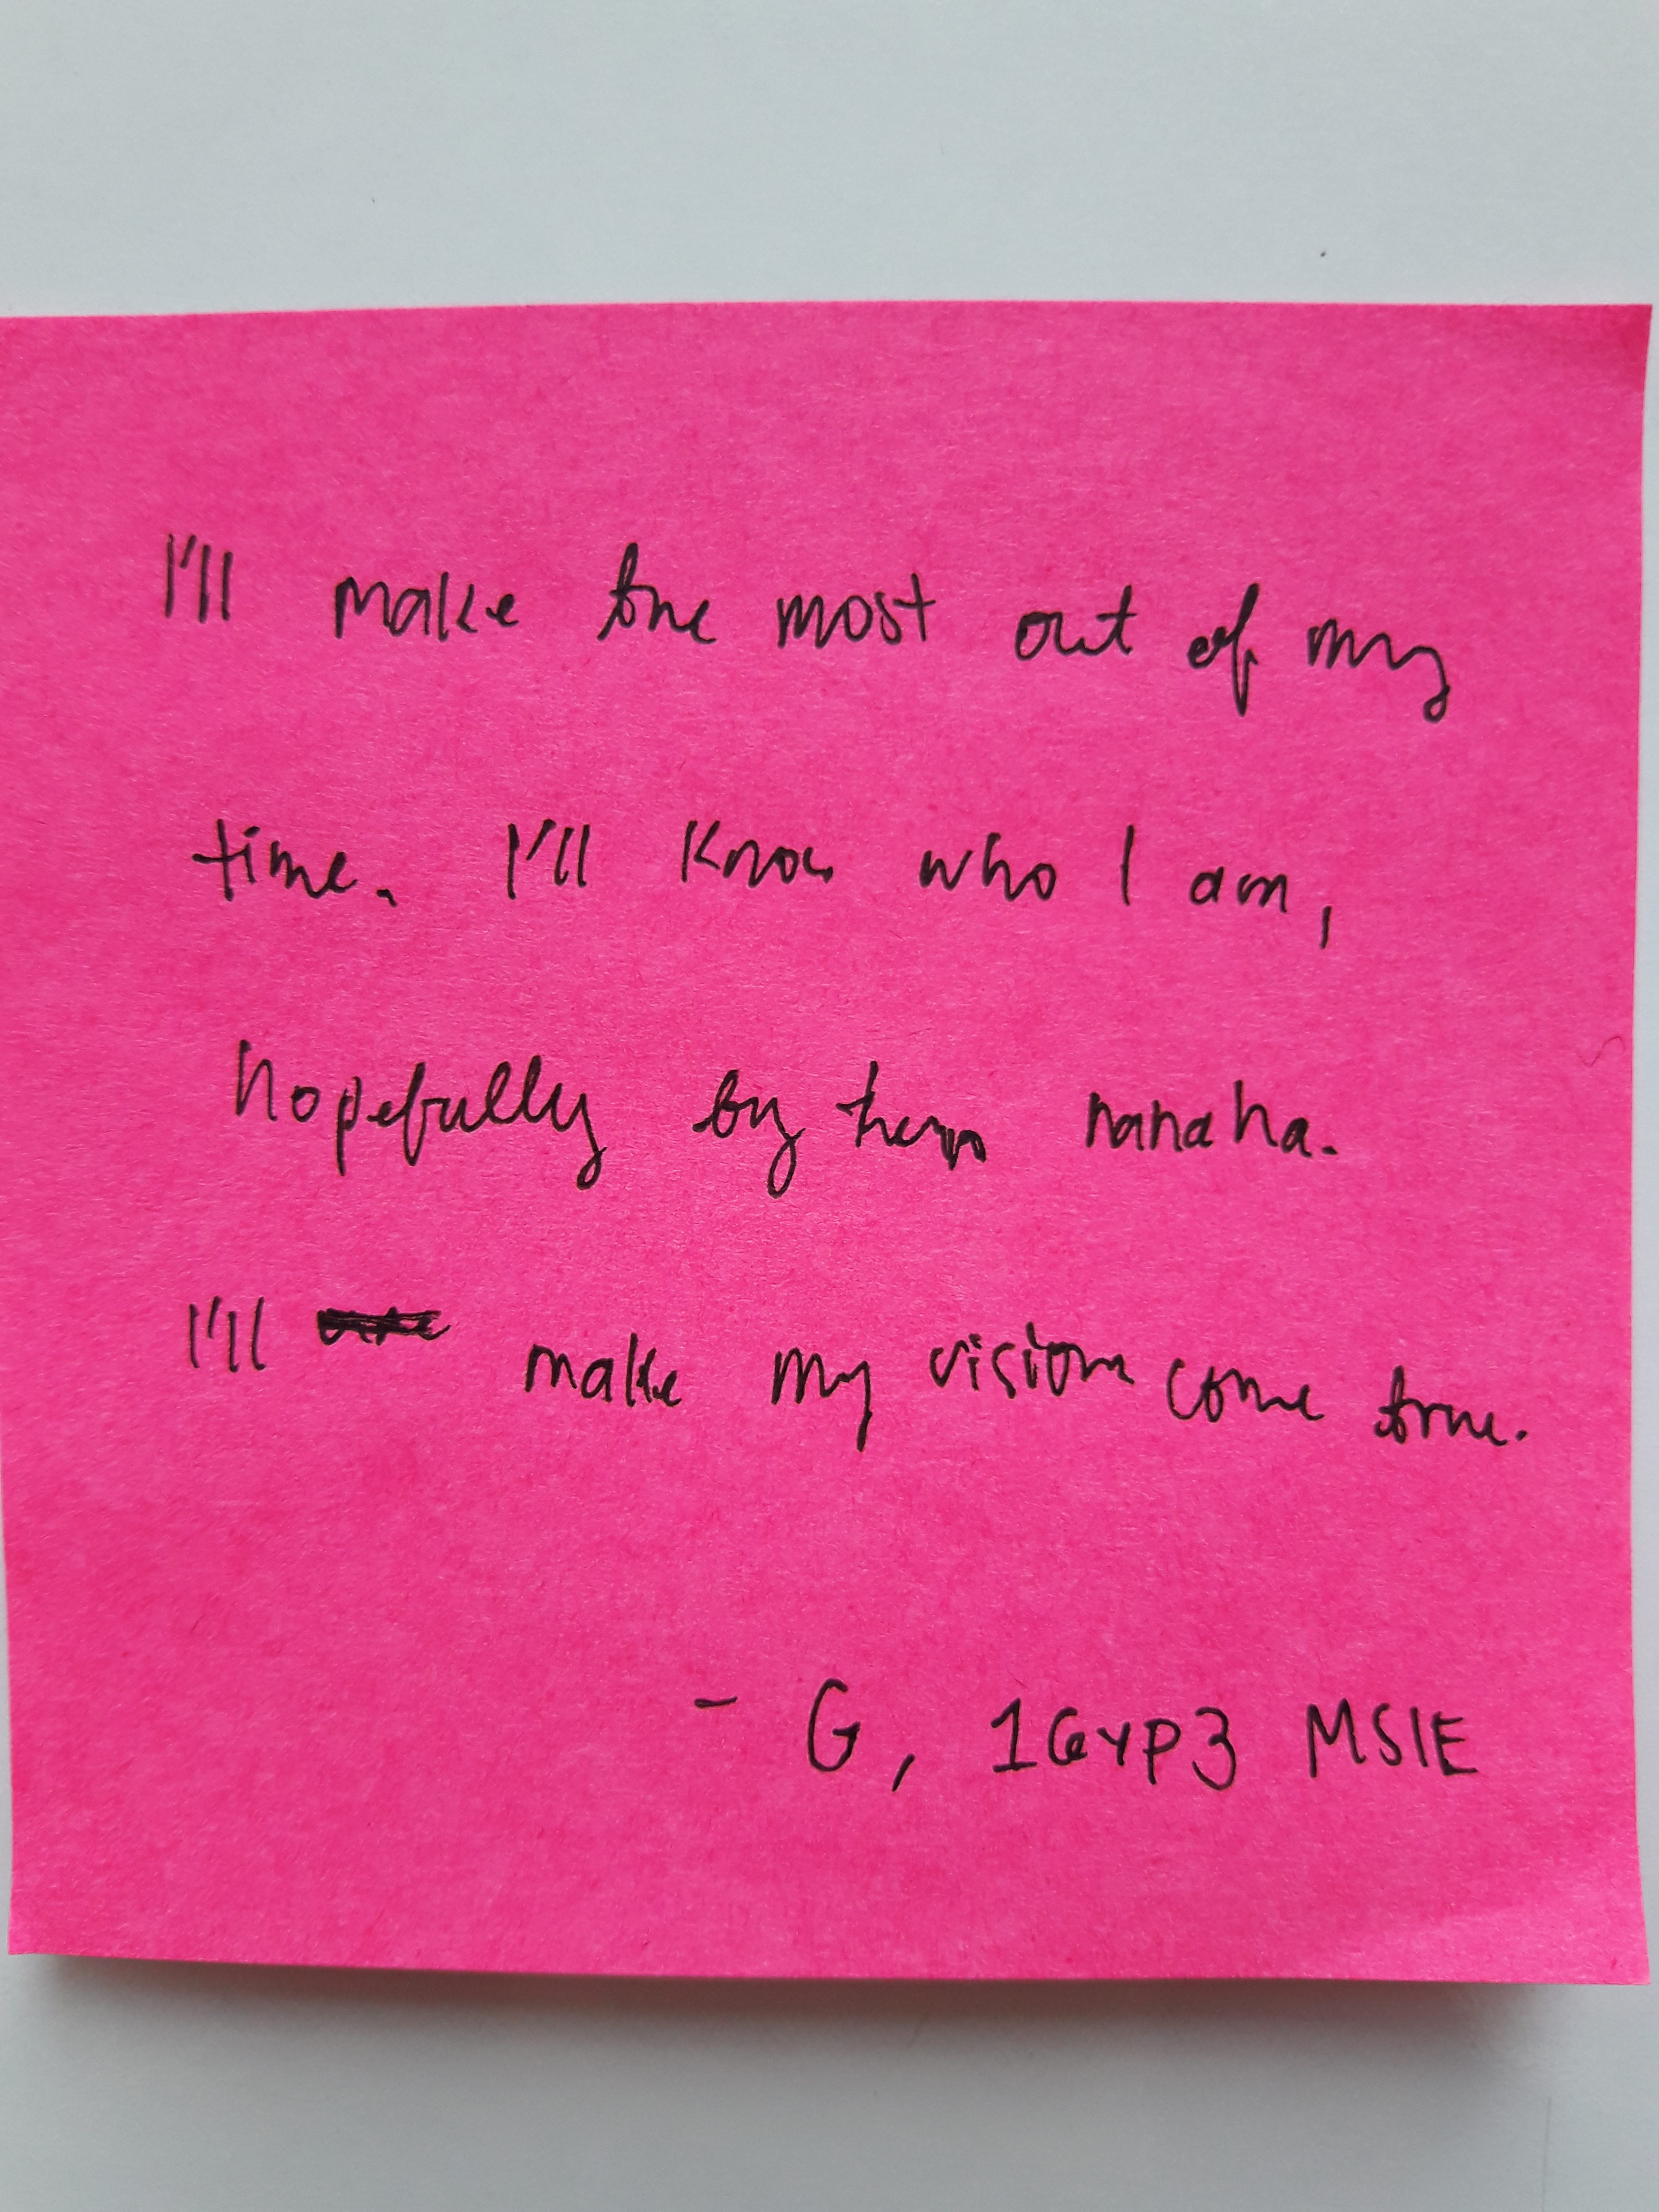 I'll make the most out of my
time. I'll know who I am,
hopefully by then hahaha.
I'll make my vision come true.
- G, 1GYP3 MSIE